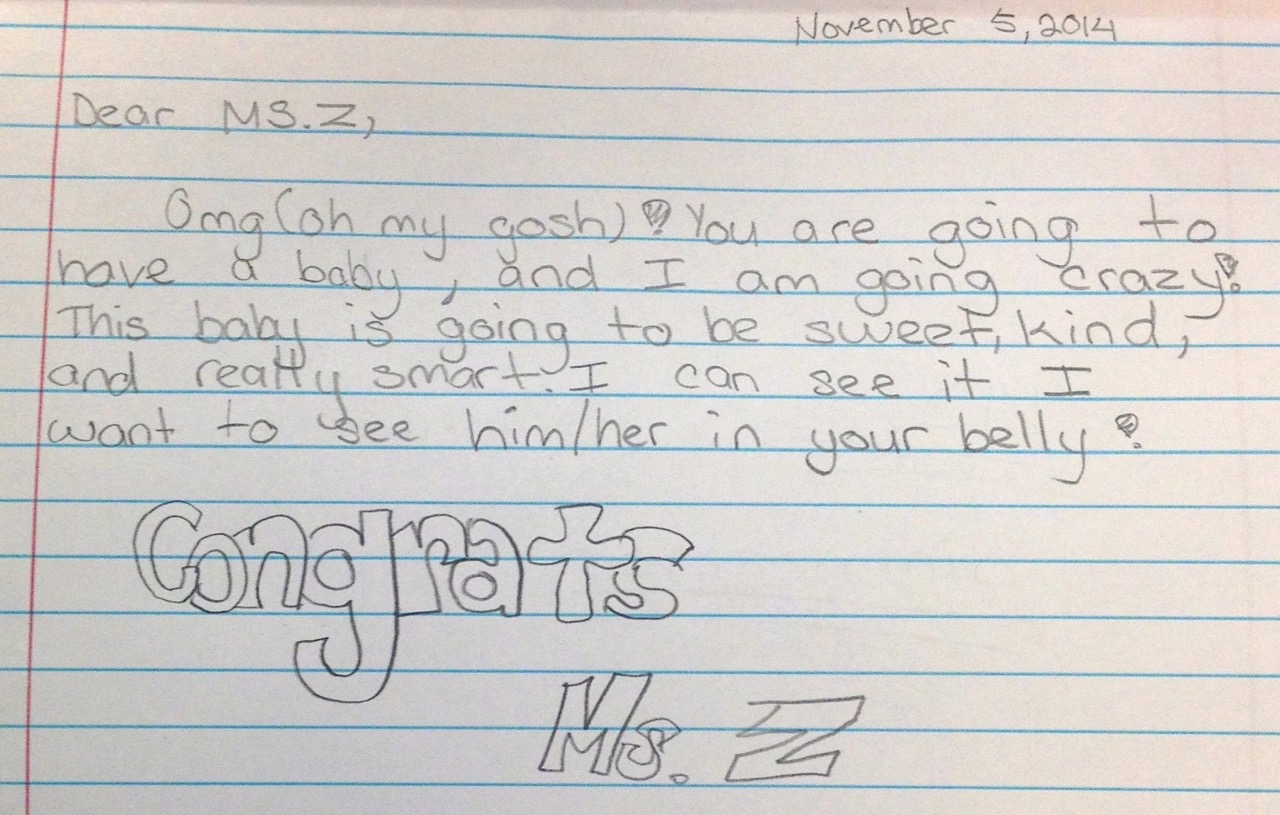 November 5, 2014
Dear MS. Z,
Omg (oh my gosh)! You are going to
have a baby, and I am going crazy!
This baby is going to be sweet, kind,
and really smart. I can see it I
want to see him/her in your belly!
Congrats
Ms. Z